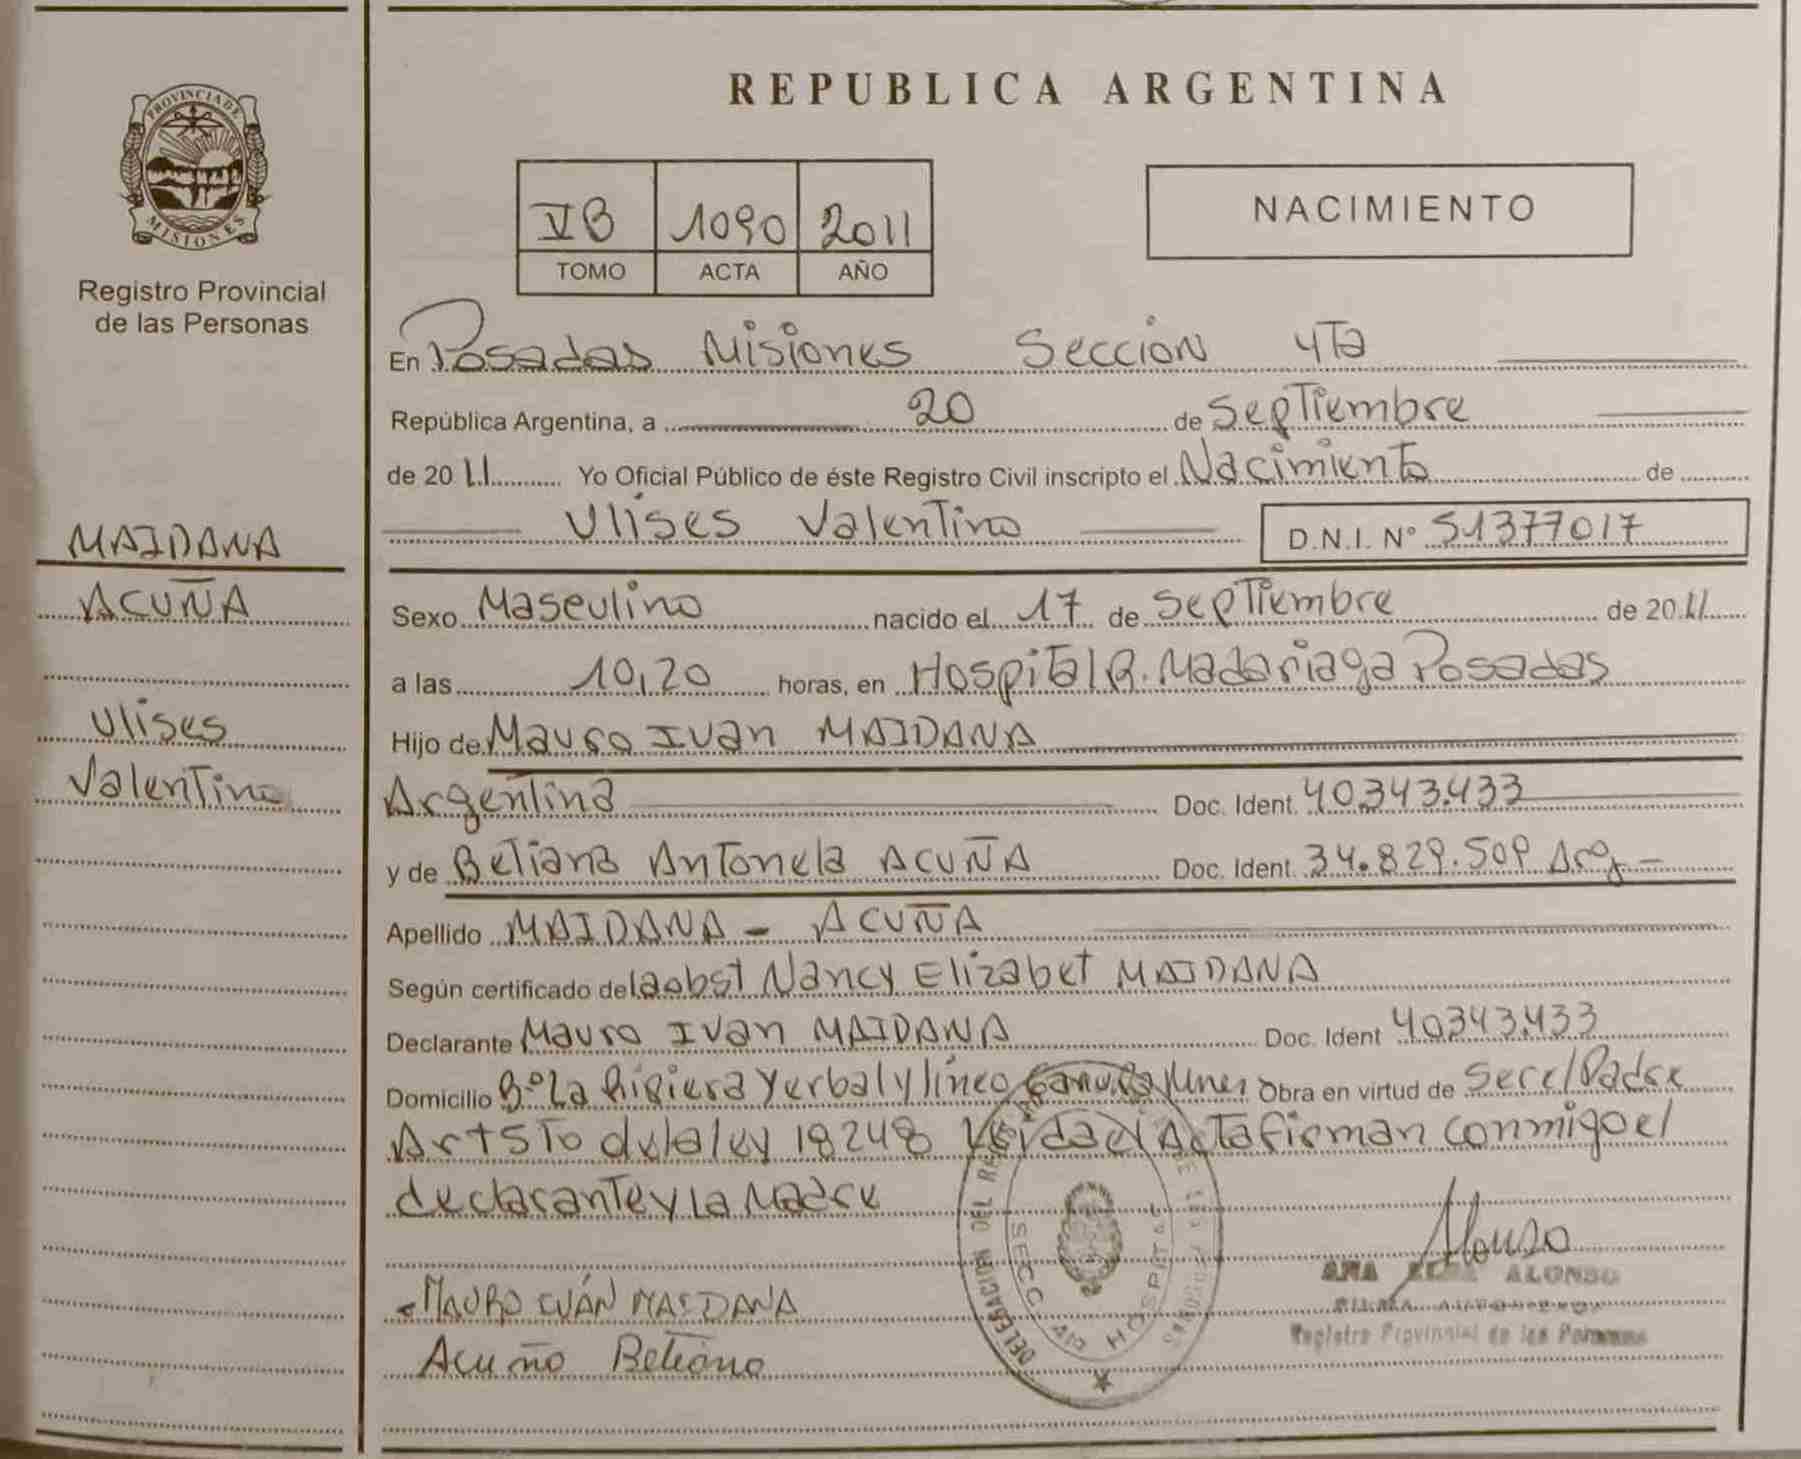 PROVINCIA DE
MISIONES
Registro Provincial
de las Personas
MAIDANA
ACUÑA
Ulises
Valentino
REPUBLICA ARGENTINA
VB 1090 2011
TOMO ACTA AÑO
NACIMIENTO
En Posadas Misiones Sección 4Ta
República Argentina, a 20 de Septiembre
de 2011 Yo Oficial Público de éste Registro Civil inscripto el Nacimiento de
Ulises Valentino D.N.I. Nº 51377017
Sexo Masculino nacido el 17 de Septiembre de 2011
a las 10,20 horas, en Hospital R. Madariaga Posadas
Hijo de Mauro Ivan MAIDANA
Argentina Doc. Ident. 40.343.433
y de Betiana Antonela ACUÑA Doc. Ident. 34.829.509 Arg
Apellido MAIDANA - ACUÑA
Según certificado de la obst Nancy Elizabet MAIDANA
Declarante Mauro Ivan MAIDANA Doc. Ident 40343.433
Domicilio Bº La Yerbal y Obra en virtud de Padre
Art 5To de la ley 18248 Acta firman conmigo el
declarante y La Madre
MAURO IVÁN MAIDANA
Acuña Betiana
DELEGACION DEL
SECC 4ta HOSPITAL
Alonso
ANA ALONSO
Registro Provincial de las Personas